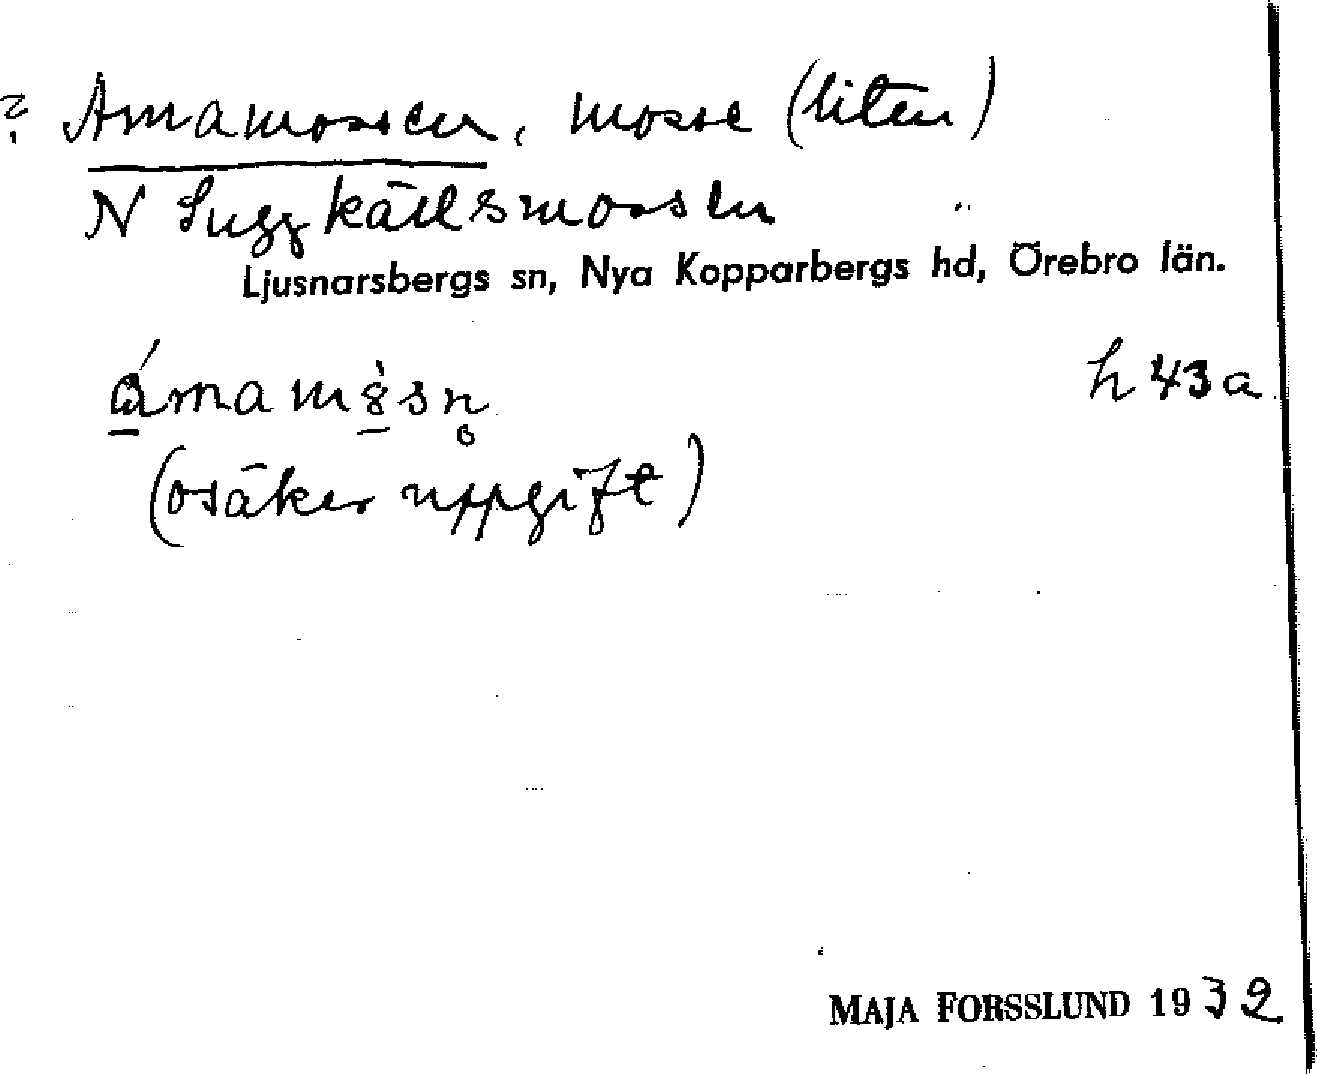 ? Amamossen, mosse (liten)
N Suggkällsmossen
Ljusnarsbergs sn, Nya Kopparbergs hd, Örebro län.
h 43 a
(osäker uppgift)
MAJA FORSSLUND 1932